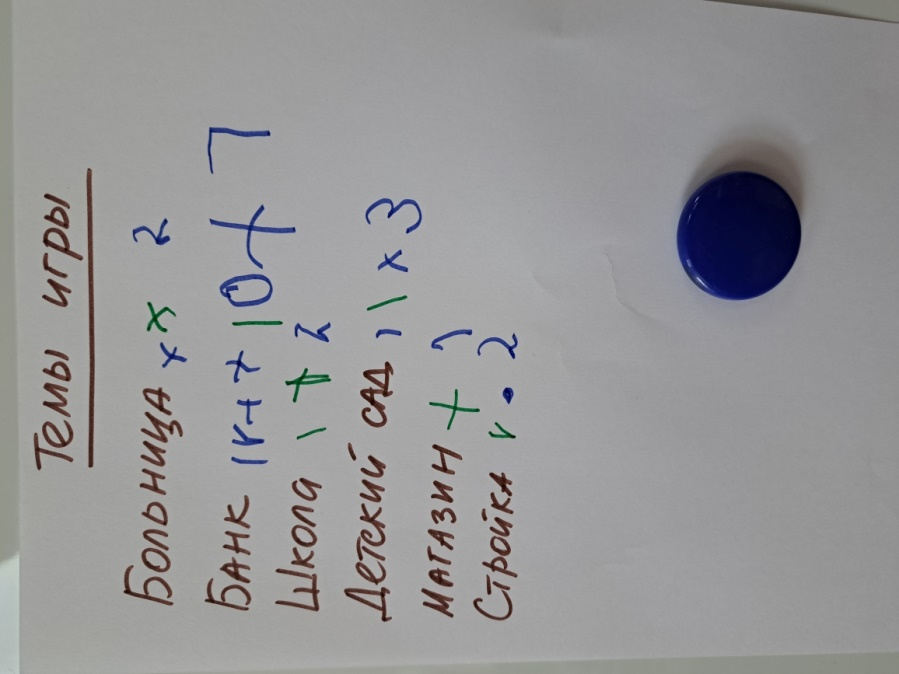 Темы игры
Больница x x 2
Банк 1 v + + | 0 + 7
Школа \ + 2
Детский сад 1 | x 3
Магазин + 1
Стройка v • 2